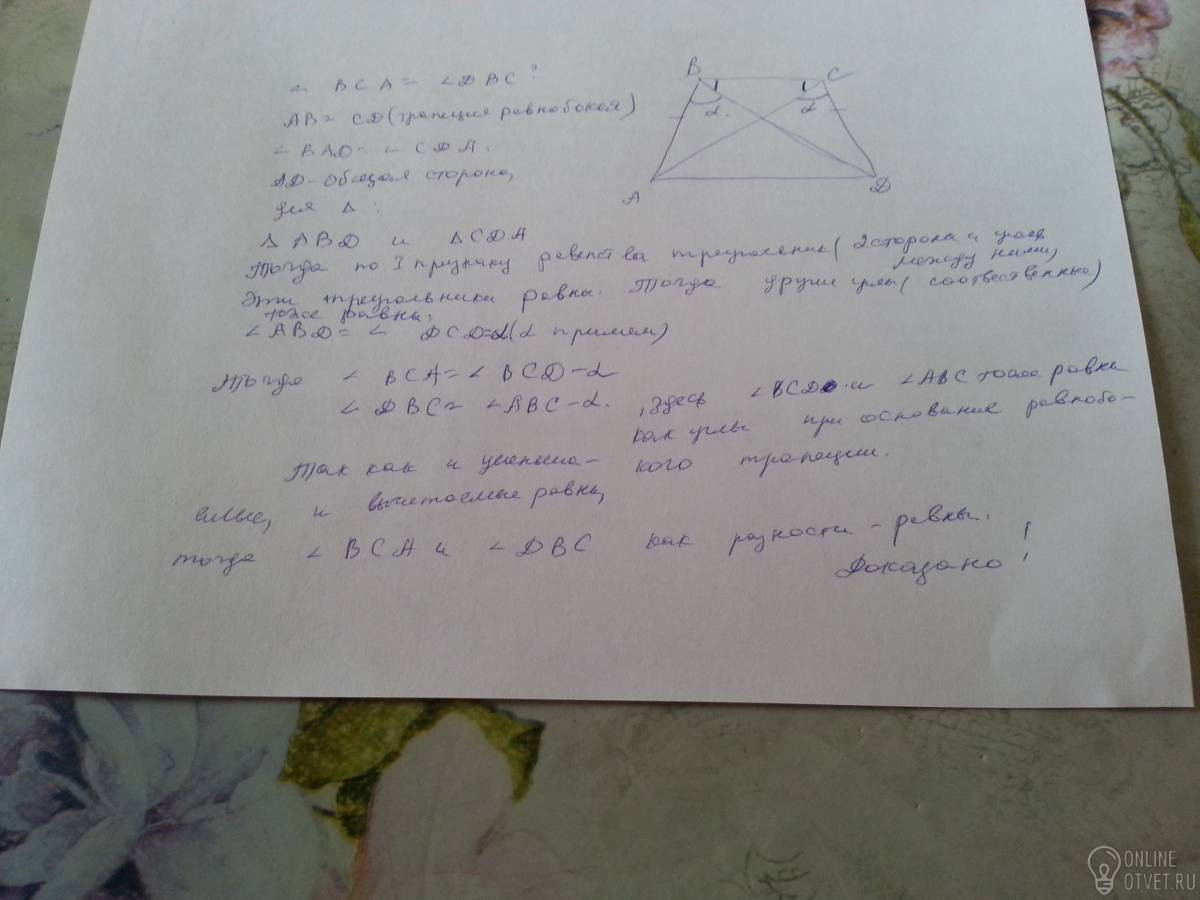 ∠ BCA = ∠DBC ?
AB = CD (трапеция равнобокая)
∠ BAD = ∠ CDA.
AD - общая сторона,
для Δ :
Δ ABD и ΔCDA
Тогда по I признаку равенства треугольник ( 2 стороны и угол
между ними,
Эти треугольники равны. Тогда другие углы ( соотвественные)
тоже равны:
∠ABD = ∠ DCD = α (α примем)
Тогда ∠ BCA = ∠ BCD - α
∠ DBC = ∠ABC - α. , здесь ∠BCD и ∠ABC тоже равны
как углы при основание равнобо-
Так как и уменьша- кого трапеции.
емые, и вычитаемые равны,
тогда ∠ BCA и ∠DBC как разности - равны.
Доказано !
B
C
α.
α
A
D
ONLINE
OTVET.RU